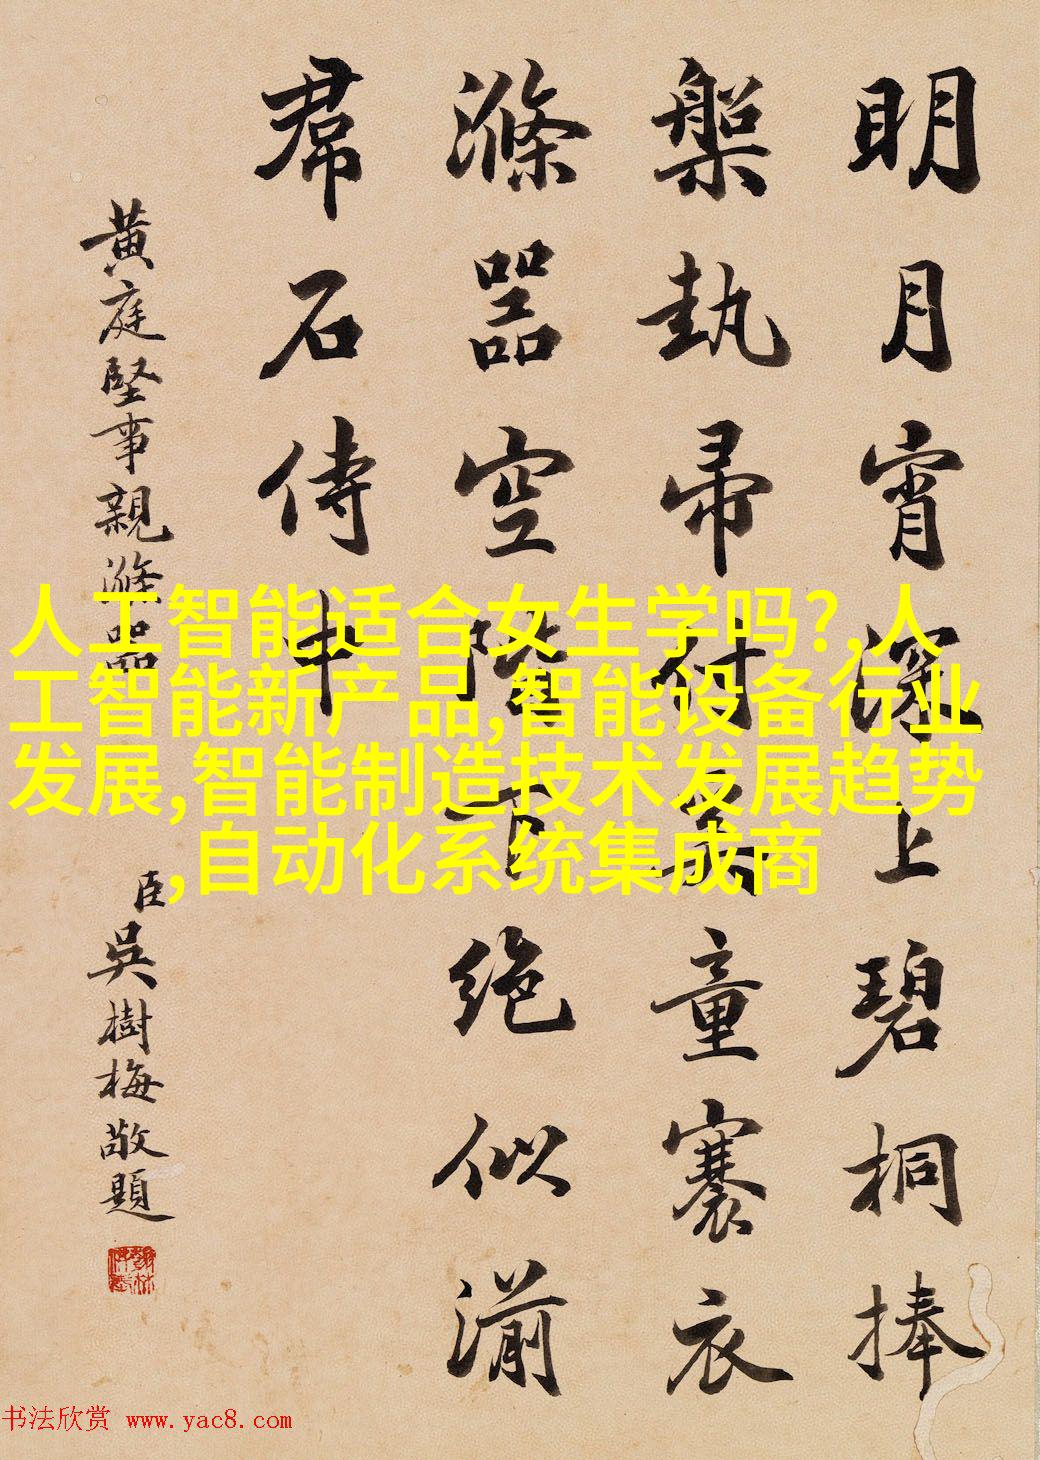 明月宵深上碧桐捧
槃執帚付美童褰衣
滌器空階下絶似湔
帬石侍中
黄庭堅事親滌器
臣吳樹梅敬題
人工智能适合女生学吗?,人
工智能新产品,智能设备行业
发展,智能制造技术发展趋势
,自动化系统集成商
书法欣赏 www.yac8.com